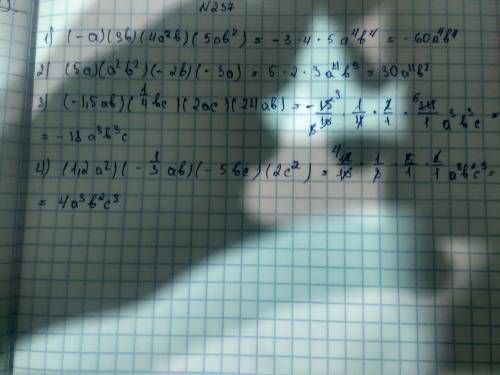 №237
1) (-a)(3b)(4a²b)(5ab²) = -3·4·5a⁴b⁴ = -60a⁴b⁴
2) (5a)(a²b²)(-2b)(-3a) = 5·2·3a⁴b³ = 30a⁴b³
3) (-1,5ab)(1/4bc)(2ac)(24ab) = -15/10·1/4·2/1·24/1 a³b³c =
= -18a³b³c
4) (1,2a²)(-1/3ab)(-5bc)(2c²) = 12/10·1/3·5/1·2/1 a³b²c³ =
= 4a³b²c³